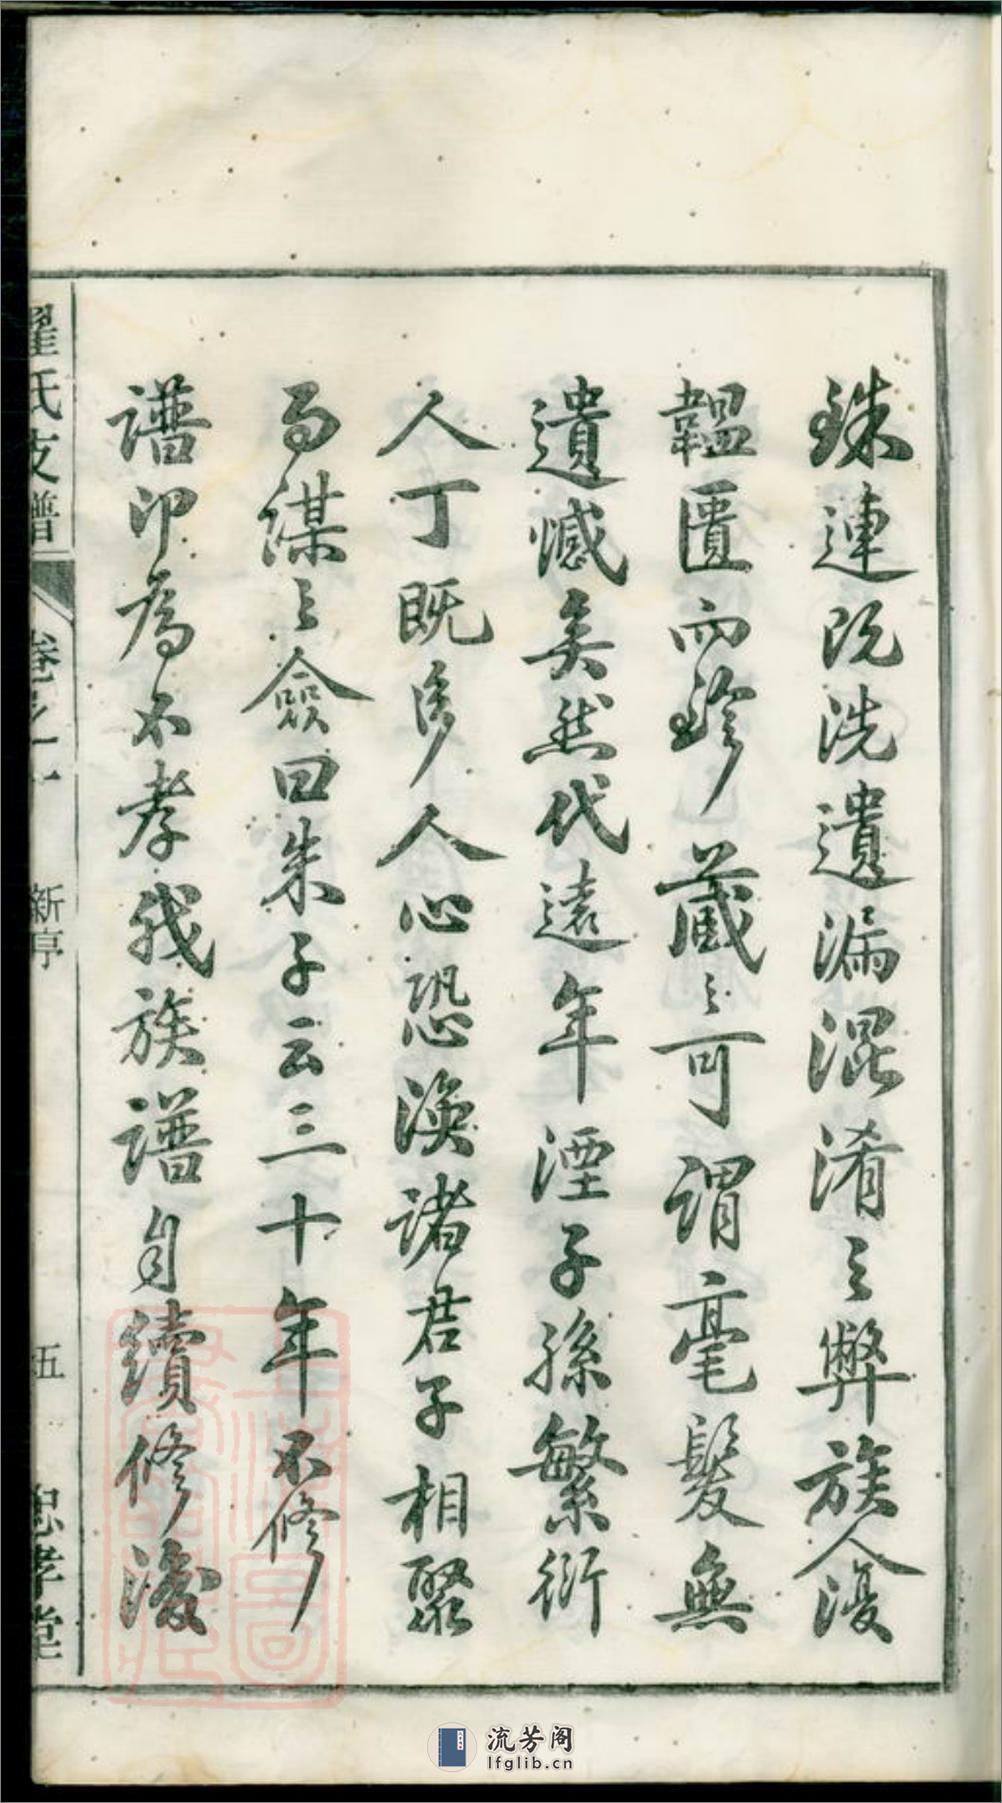 銖連既洗遺漏混淆之弊族人復
韞匱而珍藏之可謂毫髮無
遺憾矣然代遠年湮子孫繁衍
人丁既多人心恐渙諸君子相聚
而謀之僉曰朱子云三十年不修
譜即為不孝我族譜自續修後
翟氏支譜
卷之一
新序
五
忠孝堂
流芳阁
lfglib.cn